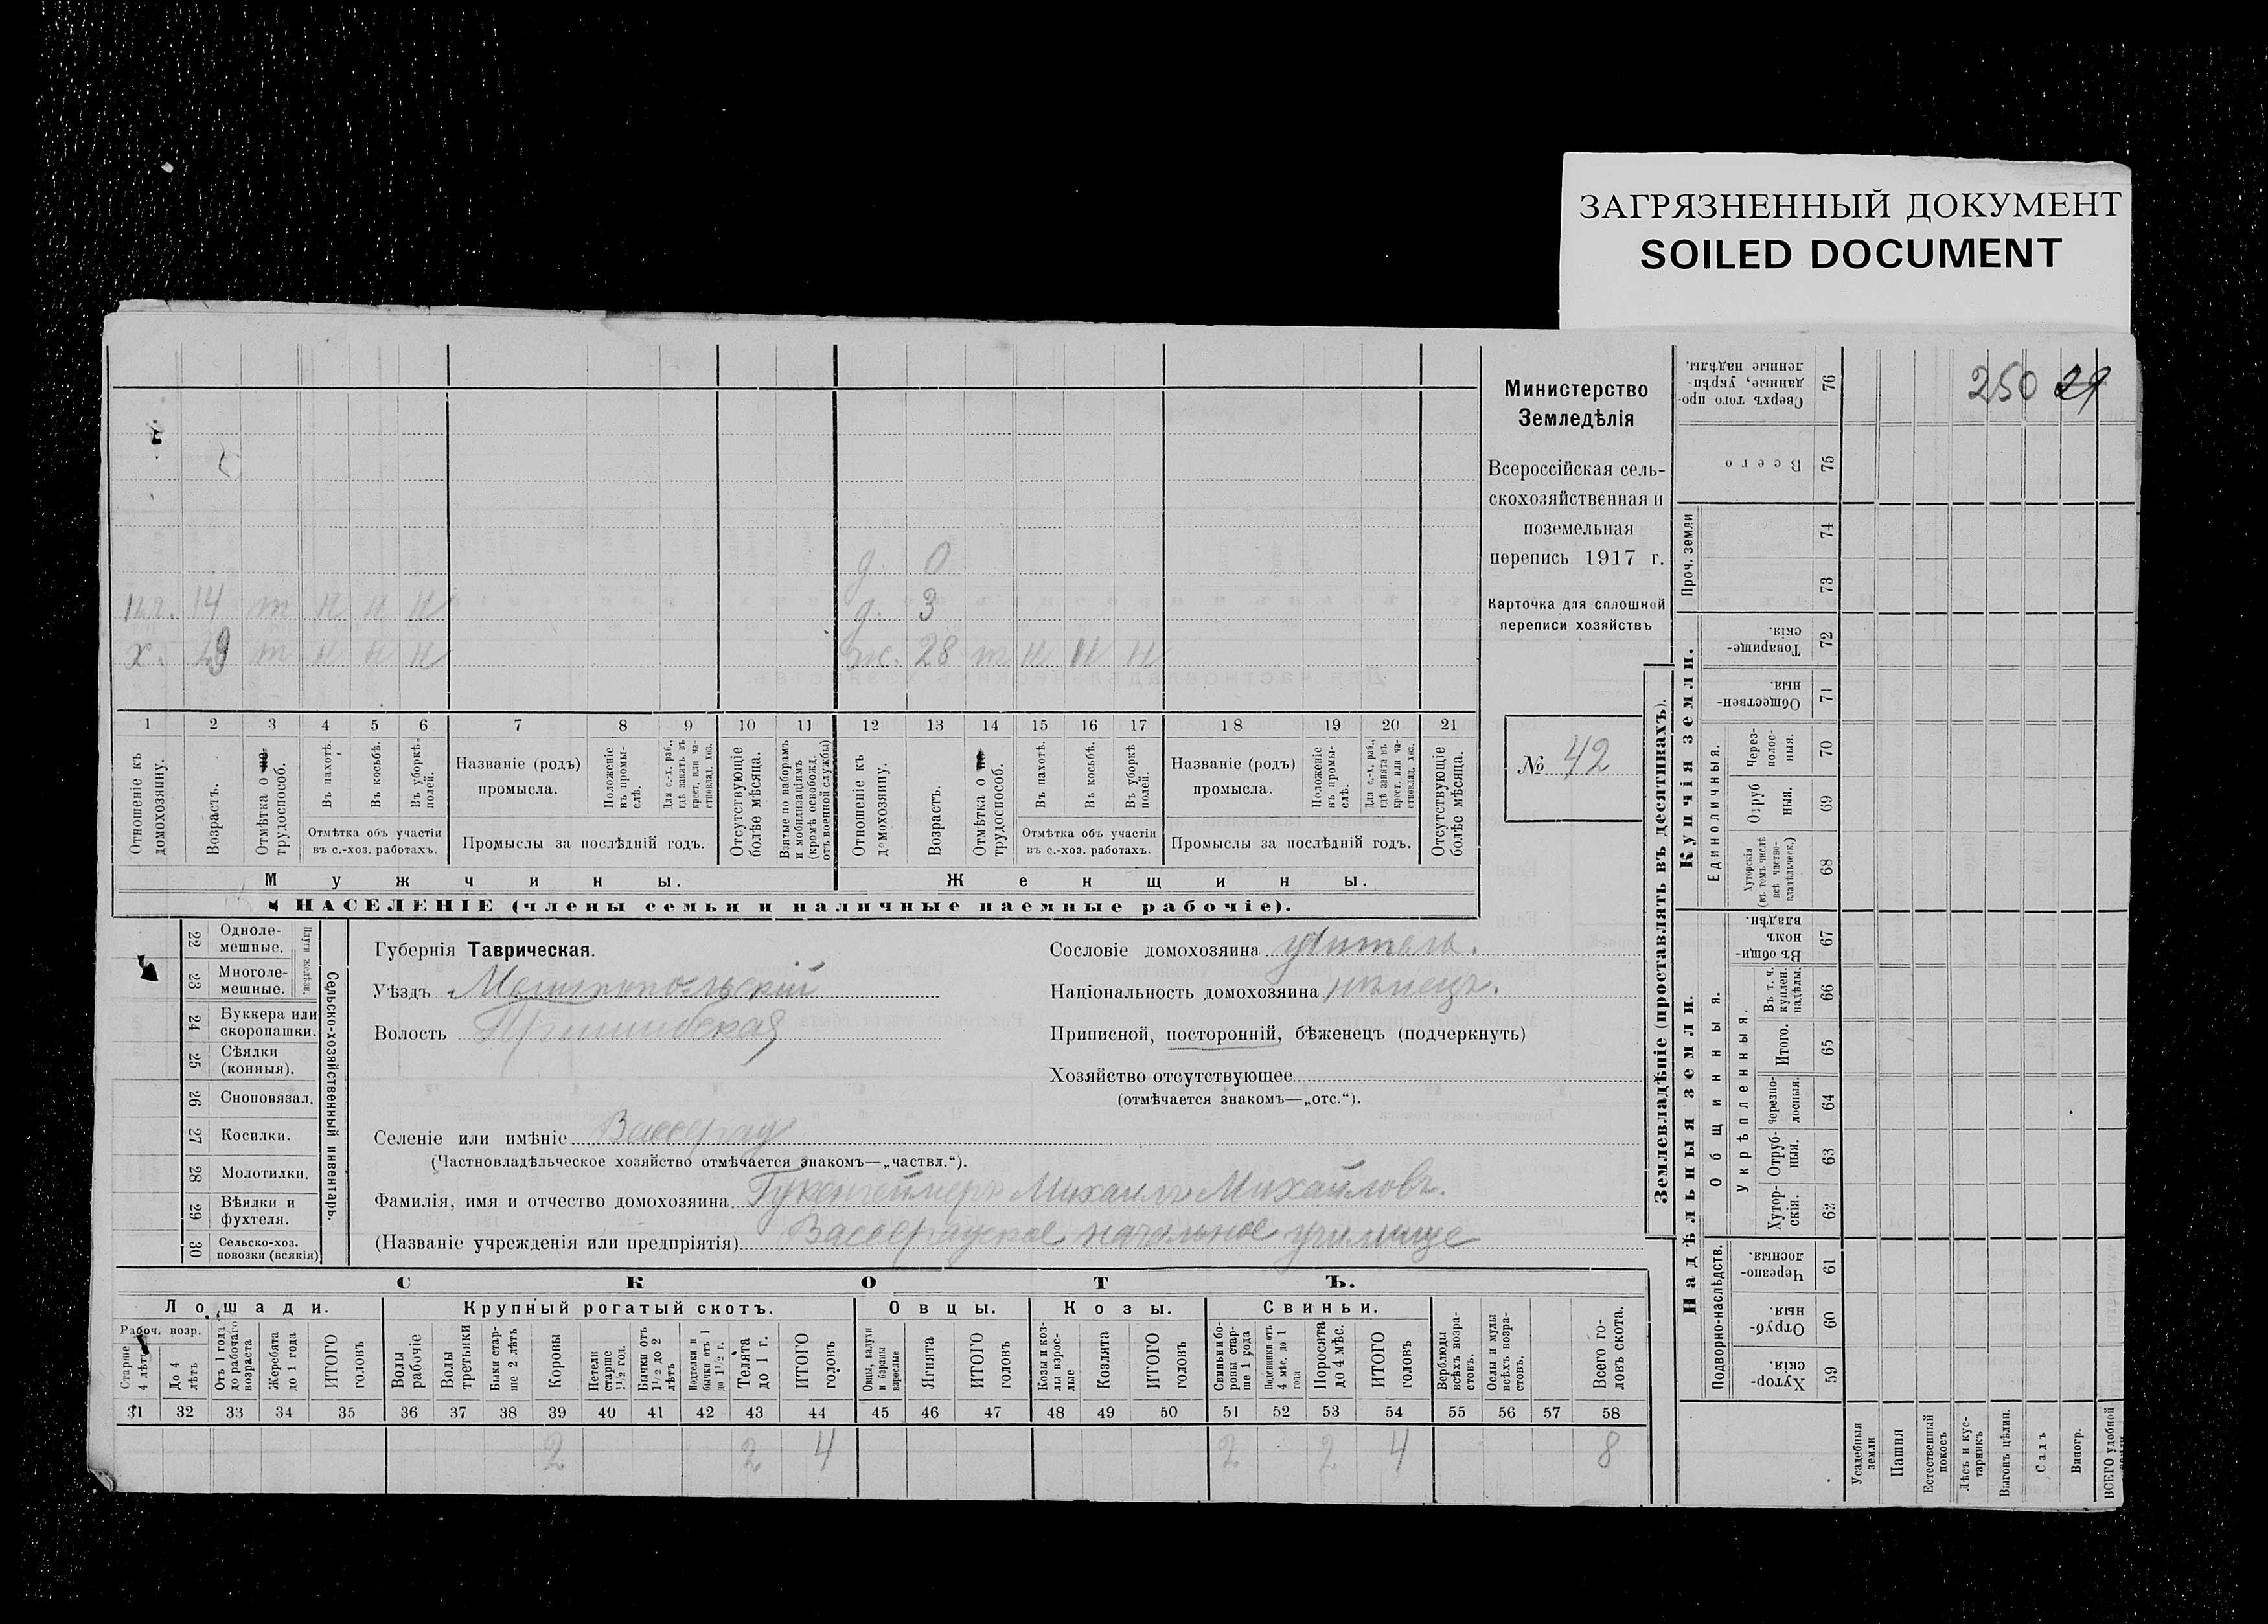 ЗАГРЯЗНЕННЫЙ ДОКУМЕНТ
SOILED DOCUMENT
д. 0
14 т н н н
д. 3
х. 29 т н н н
ж. 28 т н н н
1 2 3 4 5 6 7 8 9 10 11 12 13 14 15 16 17 18 19 20 21
Отношеніе къ домохозяину.
Возрастъ.
Отмѣтка о трудоспособ.
Въ пахотѣ.
Въ косьбѣ.
Въ уборкѣ полей.
Отмѣтка объ участіи въ с.-хоз. работахъ.
Названіе (родъ) промысла.
Положеніе въ промыслѣ.
Для с.-х. раб., гдѣ занятъ въ крест. или частновлад. хоз.
Промыслы за послѣдній годъ.
Отсутствующіе болѣе мѣсяца.
Взятые по наборамъ и мобилизаціямъ (кромѣ освобожд. отъ военной службы)
Отношеніе къ домохозяину.
Возрастъ.
Отмѣтка о трудоспособ.
Въ пахотѣ.
Въ косьбѣ.
Въ уборкѣ полей.
Отмѣтка объ участіи въ с.-хоз. работахъ.
Названіе (родъ) промысла.
Положеніе въ промыслѣ.
Для с.-х. раб., гдѣ занята въ крест. или частновлад. хоз.
Промыслы за послѣдній годъ.
Отсутствующіе болѣе мѣсяца.
Мужчины.
Женщины.
НАСЕЛЕНІЕ (члены семьи и наличные наемные рабочіе).
Министерство
Земледѣлія
Всероссійская сель-
скохозяйственная и
поземельная
перепись 1917 г.
Карточка для сплошной
переписи хозяйствъ
№ 42
22 Одноле-мешные.
23 Многоле-мешные.
Плуги желѣзн.
24 Буккера или скоропашки.
25 Сѣялки (конныя).
26 Сноповязал.
27 Косилки.
28 Молотилки.
29 Вѣялки и фухтеля.
30 Сельско-хоз. повозки (всякія)
Сельско-хозяйственный инвентарь.
Губернія Таврическая.
Уѣздъ Мелитопольскій
Волость Пришибская
Сословіе домохозяина учитель.
Національность домохозяина нѣмецъ.
Приписной, посторонній, бѣженецъ (подчеркнуть)
Хозяйство отсутствующее
(отмѣчается знакомъ—„отс.“).
Селеніе или имѣніе Вассерау
(Частновладѣльческое хозяйство отмѣчается знакомъ—„частвл.“).
Фамилія, имя и отчество домохозяина Гукенгеймеръ Михаилъ Михайловъ.
(Названіе учрежденія или предпріятія) Вассерауское начальное училище
СКОТЪ.
Лошади. Крупный рогатый скотъ. Овцы. Козы. Свиньи.
Рабоч. возр.
Старше 4 лѣтъ
До 4 лѣтъ
Отъ 1 года до рабочаго возраста
Жеребята до 1 года
ИТОГО головъ
Волы рабочіе
Волы третьяки
Быки старше 2 лѣтъ
Коровы
Нетели старше 1 1/2 год.
Бычки отъ 1 1/2 до 2 лѣтъ
Подтелки и бычки отъ 1 до 1 1/2 г.
Телята до 1 г.
ИТОГО головъ
Овцы, валухи и бараны взрослые
Ягнята
ИТОГО головъ
Козы и козлы взрослые
Козлята
ИТОГО головъ
Свиньи и боровы старше 1 года
Подсвинки отъ 4 мѣс. до 1 года
Поросята до 4 мѣс.
ИТОГО головъ
Верблюды всѣхъ возрастовъ.
Ослы и мулы всѣхъ возрастовъ.
Всего головъ скота.
31 32 33 34 35 36 37 38 39 40 41 42 43 44 45 46 47 48 49 50 51 52 53 54 55 56 57 58
2 2 4 2 2 4 8
Землевладѣніе (проставлять въ десятинахъ).
Купчія земли.
Надѣльныя земли.
Сверхъ того проданные, укрѣпленные надѣлы. 76
250 29
Всего 75
Проч. земли 74 73
Товарищескія. 72
Общественныя. 71
Единоличныя.
Черезполосныя. 70
Отрубныя. 69
Хуторскія (въ томъ числѣ всѣ частновладѣльческ.) 68
Общинныя.
Въ общинномъ владѣн. 67
Укрѣпленныя.
Въ т. ч. куплен. надѣлы. 66
Итого. 65
Черезполосныя. 64
Отрубныя. 63
Хуторскія. 62
Подворно-наслѣдств.
Черезполосныя. 61
Отрубныя. 60
Хуторскія. 59
Усадебныя земли
Пашня
Естественный покосъ
Лѣсъ и кустарникъ
Выгонъ цѣлин.
Садъ
Виногр.
ВСЕГО удобной